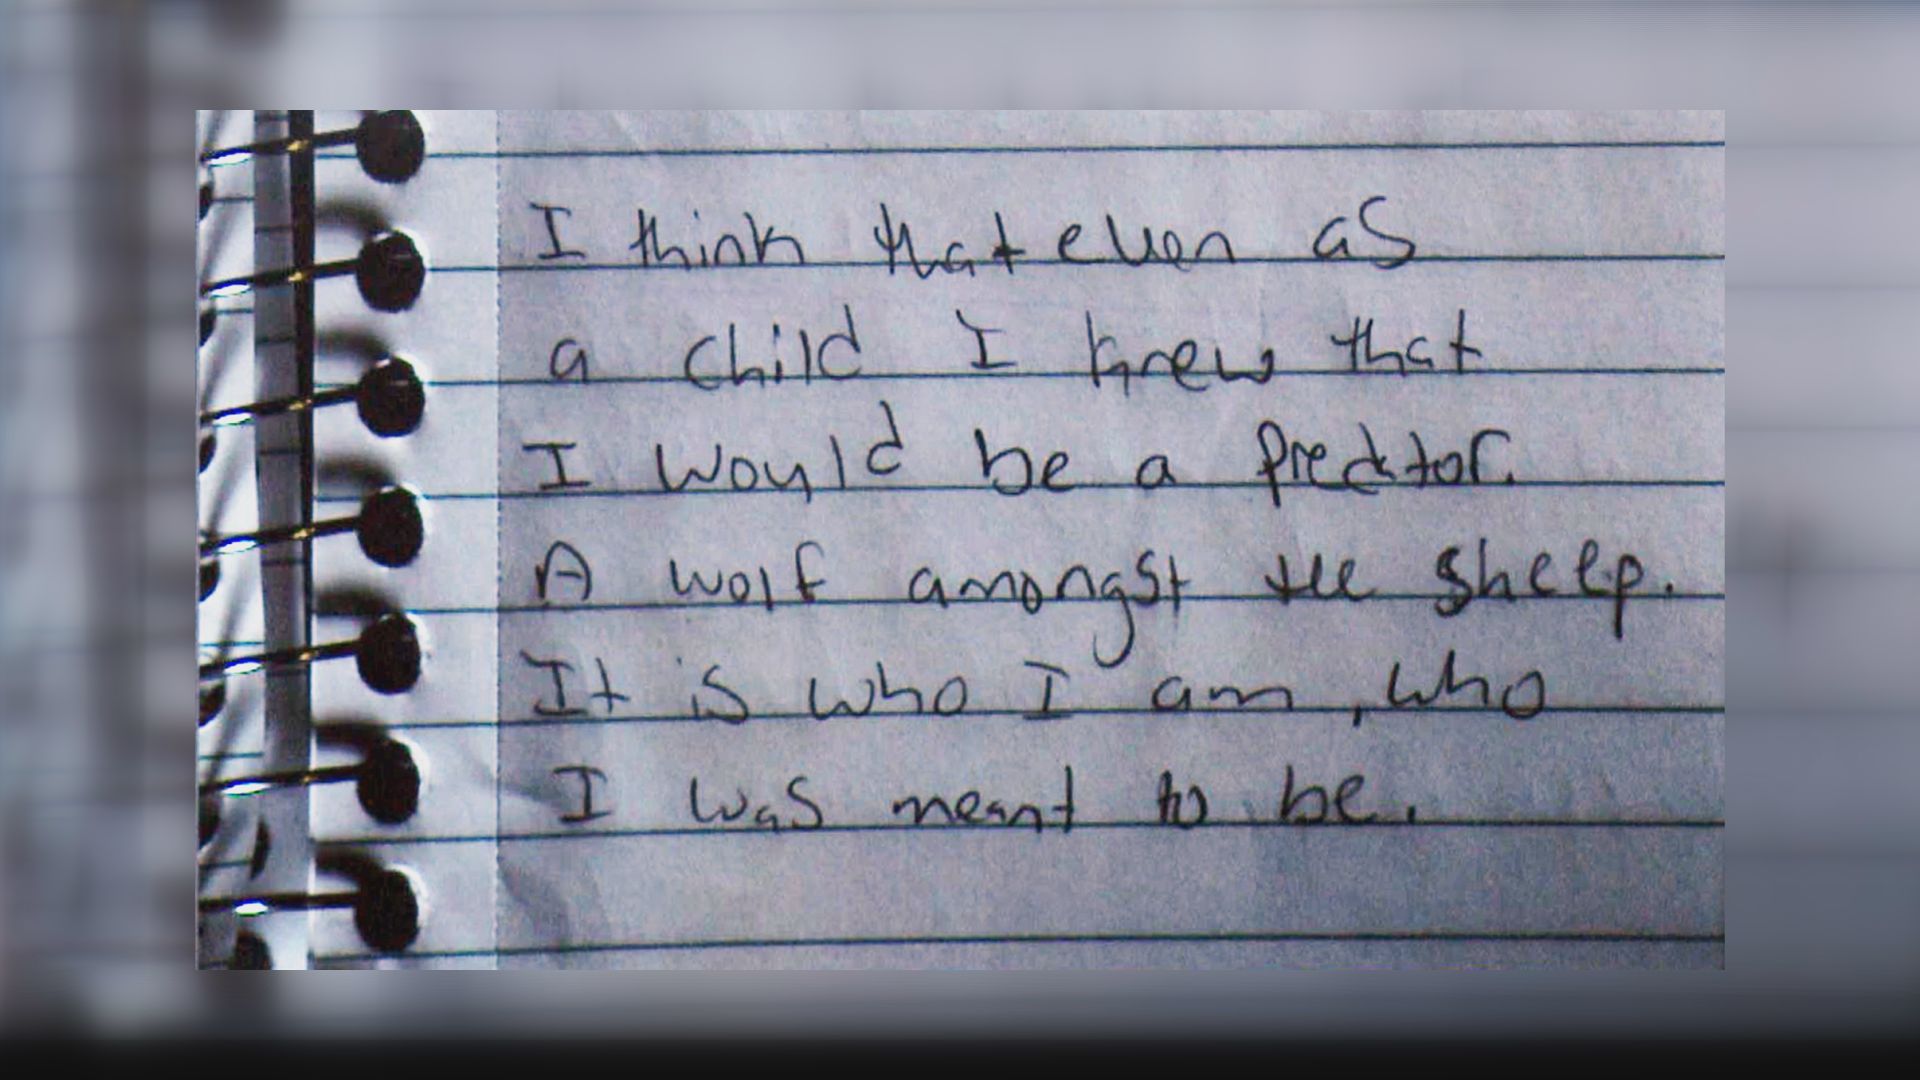 I think that even as
a child I knew that
I would be a predator.
A wolf amongst the sheep.
It is who I am, who
I was meant to be.